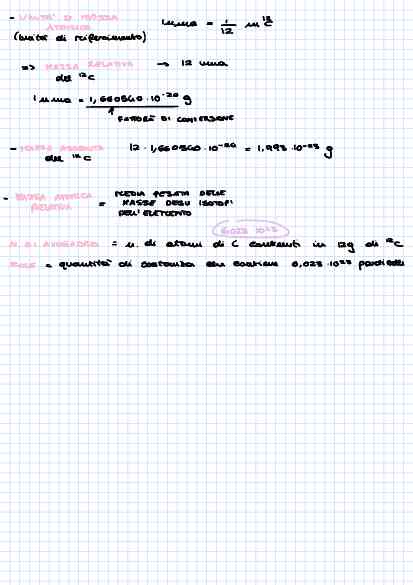 - UNITA' DI MASSA ATOMICA 1 uma = 1/12 m ¹²C
(unità di riferimento)
=> MASSA RELATIVA → 12 uma
del ¹²C
1 uma = 1,660540 · 10⁻²⁴ g
FATTORE DI CONVERSIONE
- MASSA ASSOLUTA 12 · 1,660540 · 10⁻²⁴ = 1,993 · 10⁻²³ g
del ¹²C
- MASSA ATOMICA RELATIVA = MEDIA PESATA DELLE
MASSE DEGLI ISOTOPI
DELL'ELEMENTO
6,022 · 10²³
N. DI AVOGADRO = n. di atomi di C contenuti in 12g di ¹²C
MOLE = quantità di sostanza che contiene 6,023 · 10²³ particelle